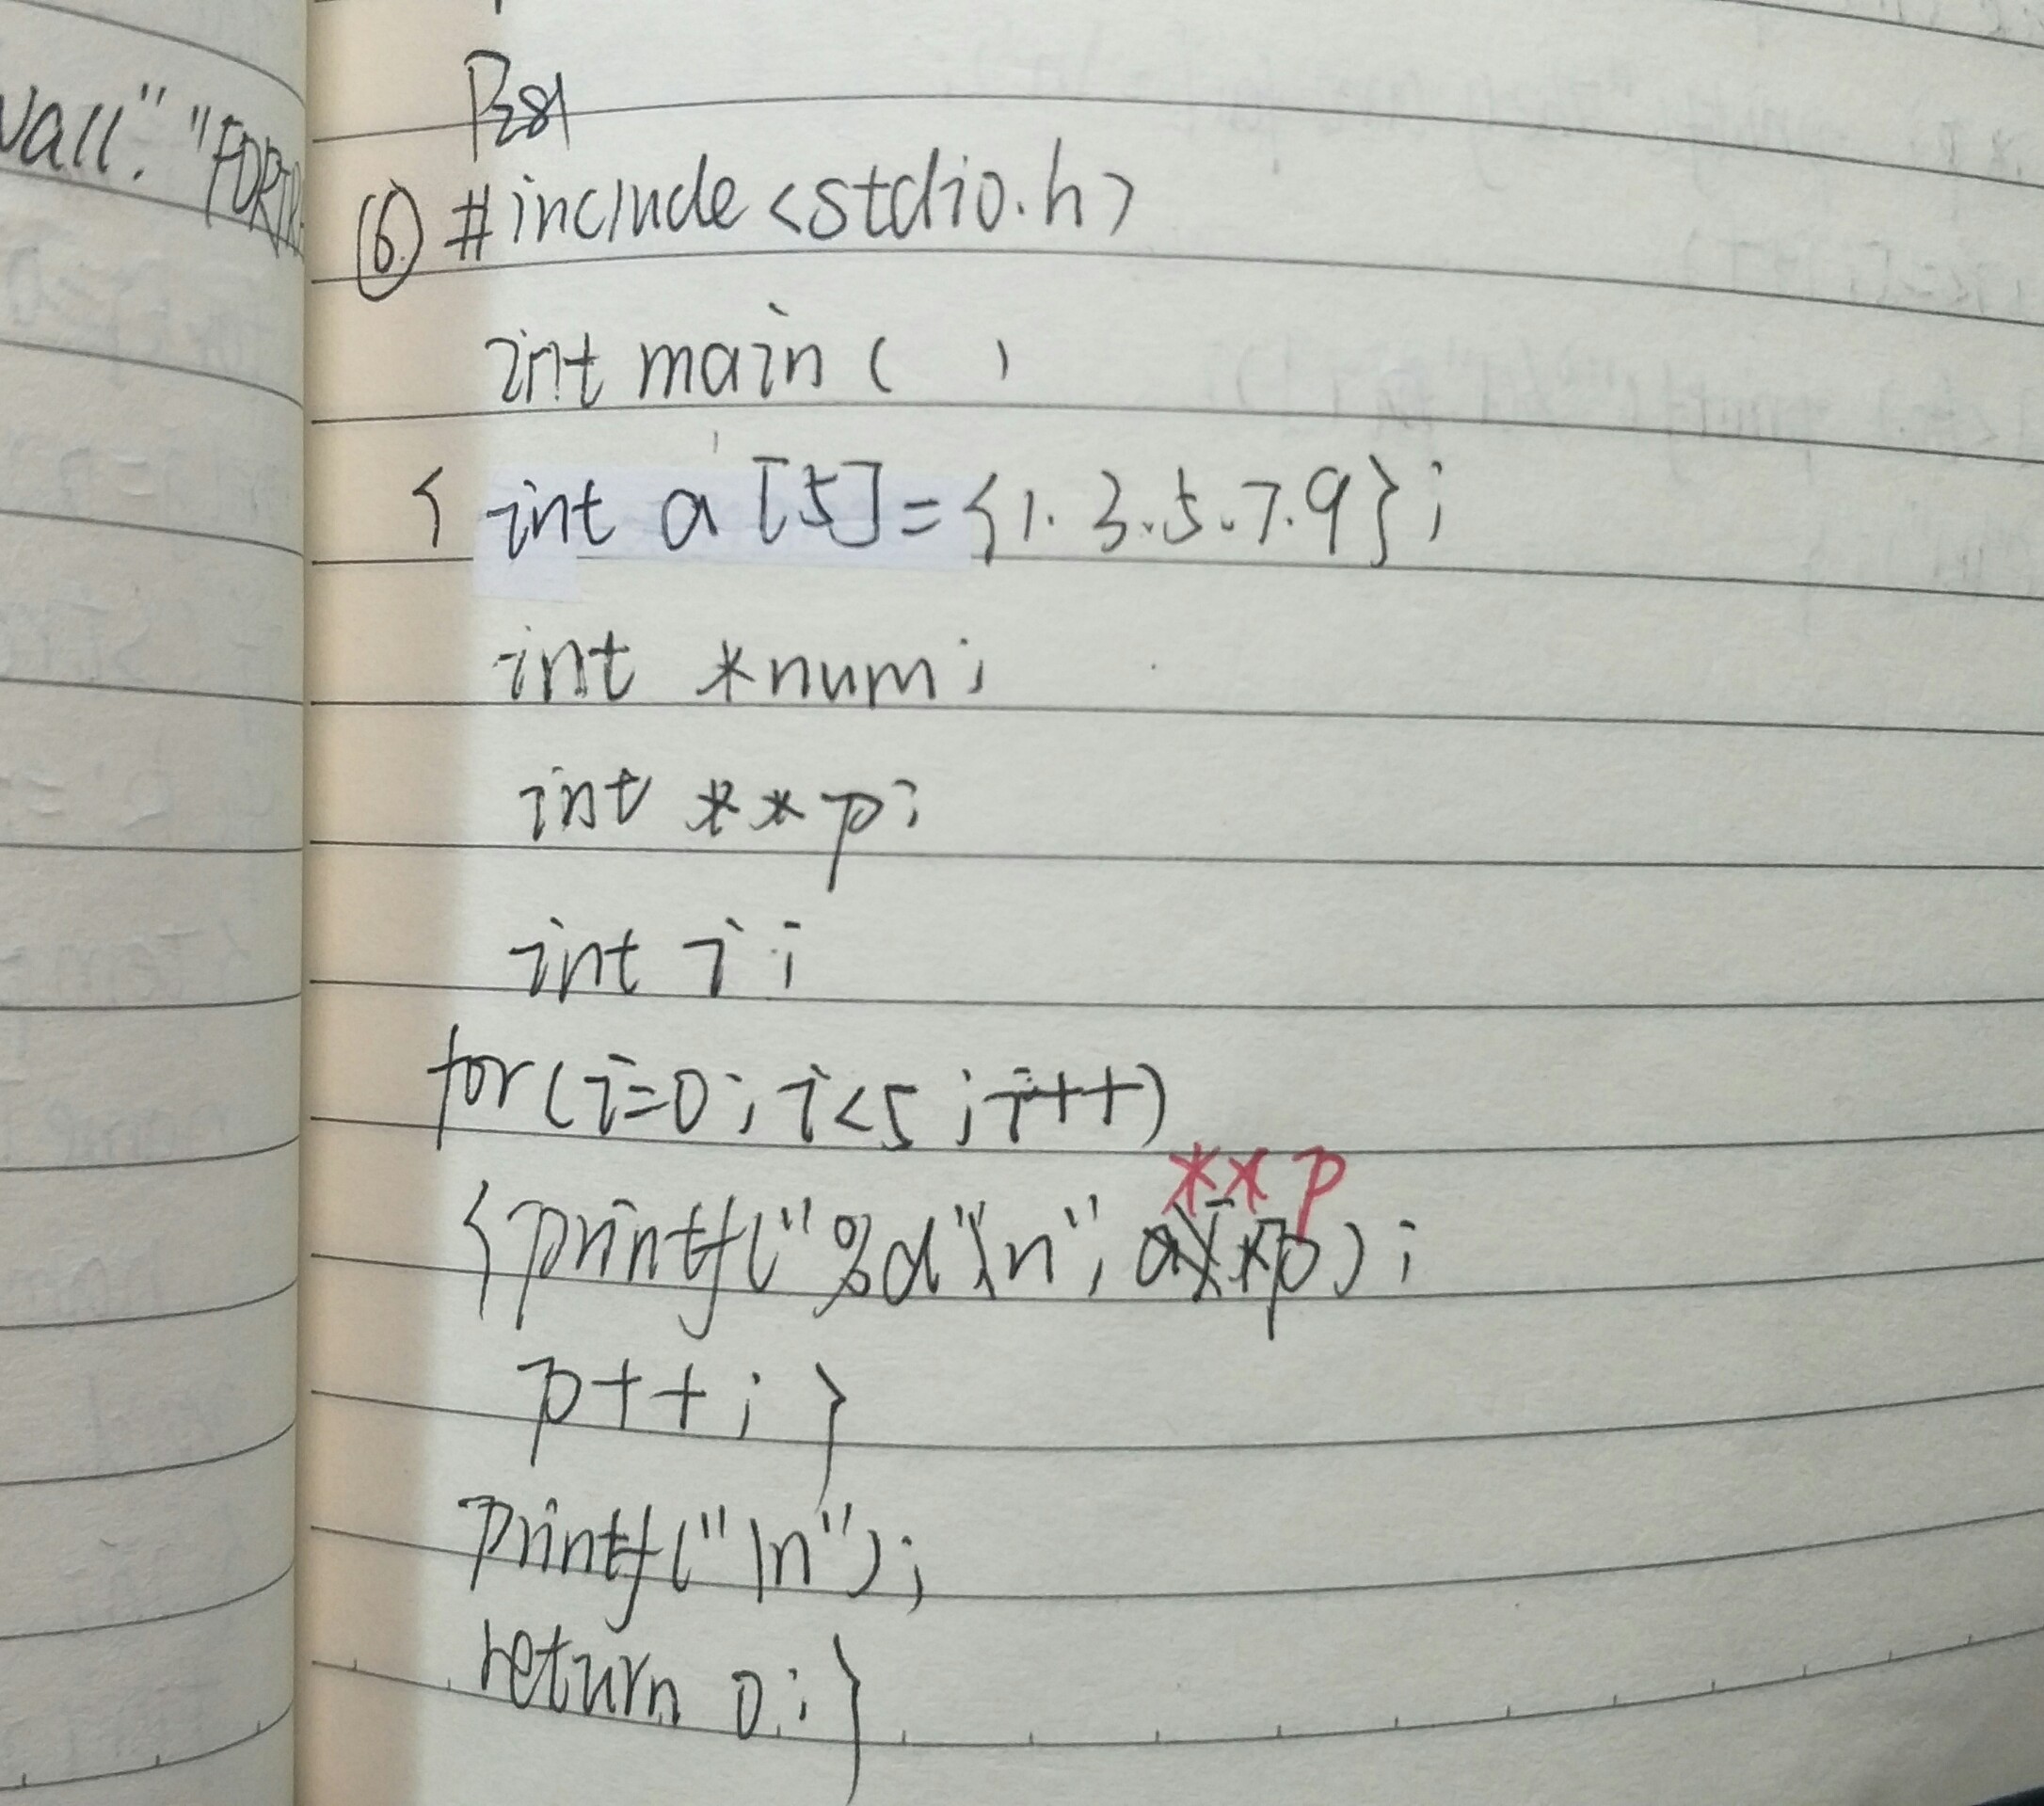 wall." "FORTR
P281
(6) #include <stdio.h>
int main ( )
{ int a [5] = {1.3.5.7.9};
int *num;
int **p;
int i;
for(i=0; i<5; i++)
**p
{printf("%d"\n", );
p++; }
printf("\n");
return 0; }